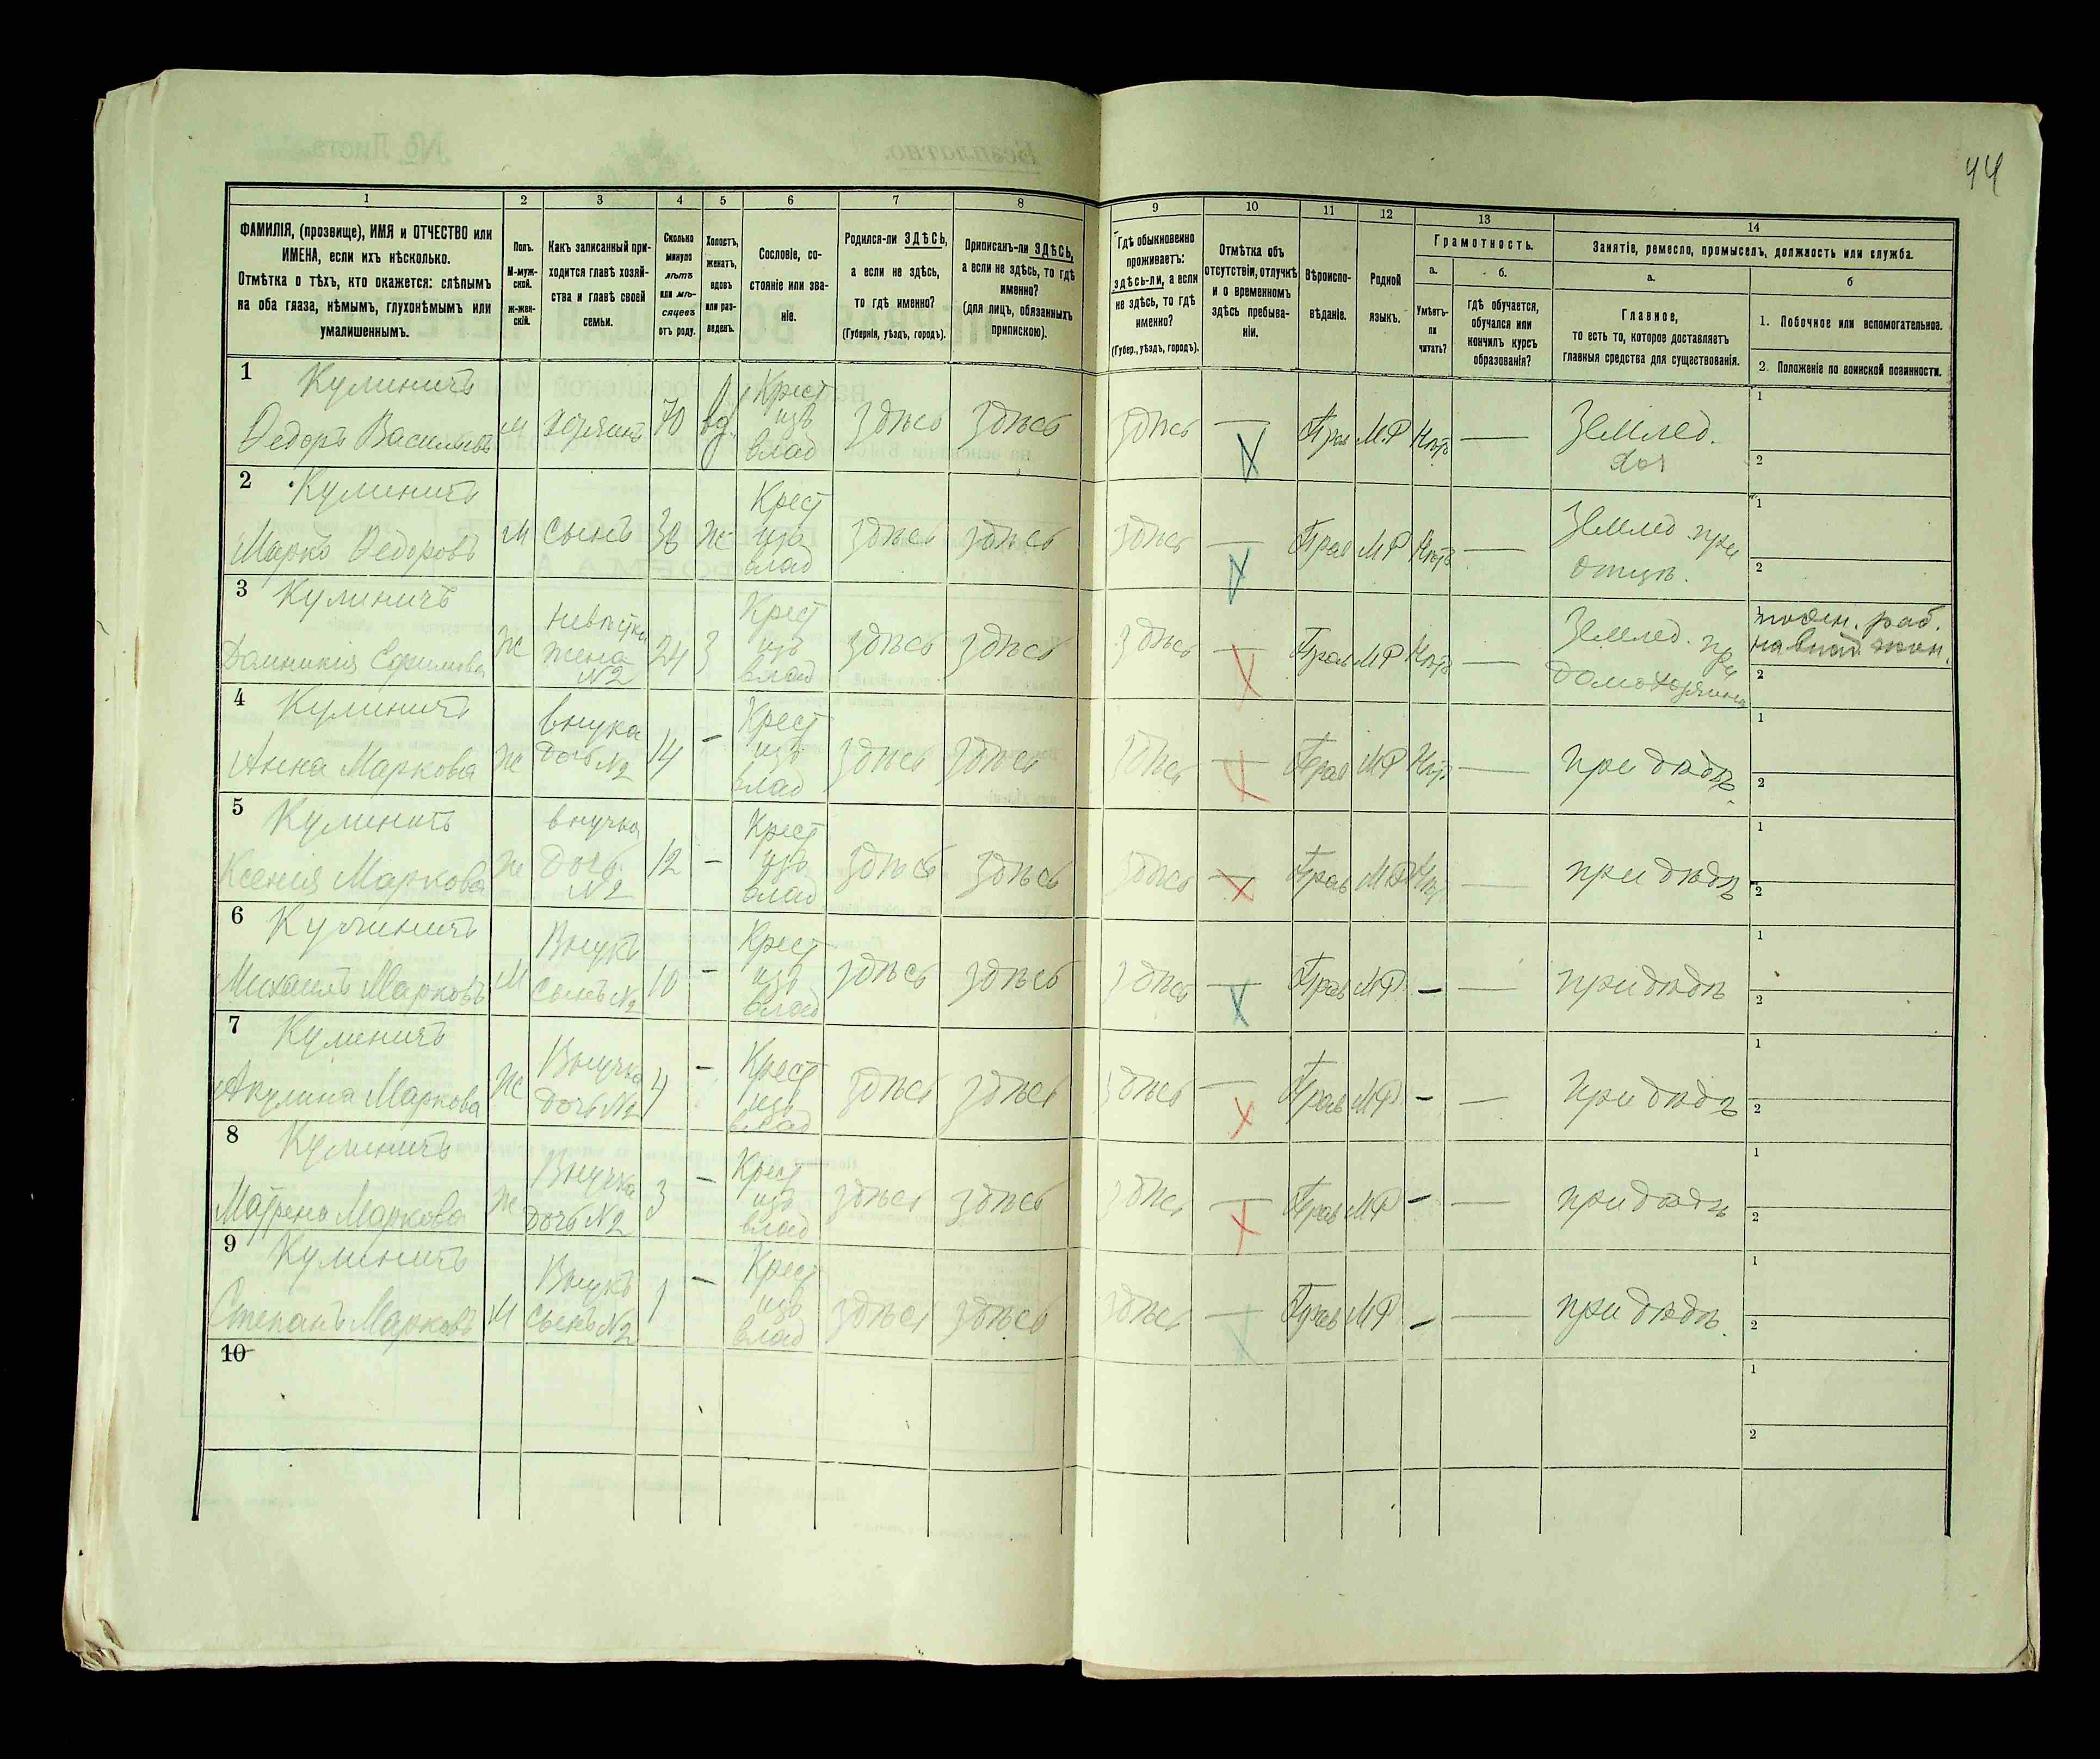 44
1 2 3 4 5 6 7 8 9 10 11 12 13 14
ФАМИЛІЯ, (прозвище), ИМЯ и ОТЧЕСТВО или
ИМЕНА, если ихъ нѣсколько.
Отмѣтка о тѣхъ, кто окажется: слѣпымъ
на оба глаза, нѣмымъ, глухонѣмымъ или
умалишеннымъ.
Полъ.
М-муж-
ской.
ж-жен-
скій.
Какъ записанный при-
ходится главѣ хозяй-
ства и главѣ своей
семьи.
Сколько
минуло
лѣтъ
или мѣ-
сяцевъ
отъ роду.
Холостъ,
женатъ,
вдовъ
или раз-
веденъ.
Сословіе, со-
стояніе или зва-
ніе.
Родился-ли ЗДѢСЬ,
а если не здѣсь,
то гдѣ именно?
(Губернія, уѣздъ, городъ).
Приписанъ-ли ЗДѢСЬ,
а если не здѣсь, то гдѣ
именно?
(для лицъ, обязанныхъ
припискою).
Гдѣ обыкновенно
проживаетъ:
здѣсь-ли, а если
не здѣсь, то гдѣ
именно?
(Губер., уѣздъ, городъ).
Отмѣтка объ
отсутствіи, отлучкѣ
и о временномъ
здѣсь пребыва-
ніи.
Вѣроиспо-
вѣданіе.
Родной
языкъ.
Грамотность.
а.
Умѣетъ-
ли
читать?
б.
гдѣ обучается,
обучался или
кончилъ курсъ
образованія?
Занятіе, ремесло, промыселъ, должность или служба.
а.
Главное,
то есть то, которое доставляетъ
главныя средства для существованія.
б
1. Побочное или вспомогательное.
2. Положеніе по воинской повинности.
1 Кулиничъ
Ѳедоръ Васильевъ м хозяинъ 70 вд. Крест изъ влад здѣсь здѣсь здѣсь — Прав М.Р Нѣтъ — Землед. хоз 1 2
2 Кулиничъ
Марко Ѳедоровъ м сынъ 38 ж Крест изъ влад здѣсь здѣсь здѣсь — Прав МР Нѣтъ — Землед при отцѣ. 1 2
3 Кулиничъ
Домникия Ефимова ж невѣстка жена №2 24 З Крест изъ влад здѣсь здѣсь здѣсь Прав МР Нѣтъ — Землед. при домохозяинѣ 2
4 Кулиничъ
Анна Маркова ж внука дочь №2 14 — Крест изъ влад здѣсь здѣсь здѣсь — Прав МР Нѣтъ — при дѣдѣ. 1 2
5 Кулиничъ
Ксенія Маркова ж внучка дочь №2 12 — Крест изъ влад здѣсь здѣсь здѣсь — Прав МР Нѣтъ — при дѣдѣ 1 2
6 Кулиничъ
Михаилъ Марковъ м Внукъ сынъ №2 10 — Крест изъ влад здѣсь здѣсь здѣсь — Прав МР — — при дѣдѣ 1 2
7 Кулиничъ
Акулина Маркова ж Внучка дочь №2 4 — Крест изъ влад здѣсь здѣсь здѣсь — Прав МР — — при дѣдѣ 1 2
8 Кулиничъ
Матрена Маркова ж Внучка дочь №2 3 — Крест изъ влад здѣсь здѣсь здѣсь — Прав МР — — при дѣдѣ 1 2
9 Кулиничъ
Степанъ Марковъ м Внукъ сынъ №2 1 — Крест изъ влад здѣсь здѣсь здѣсь — Прав МР — — при дѣдѣ. 1 2
10 1 2